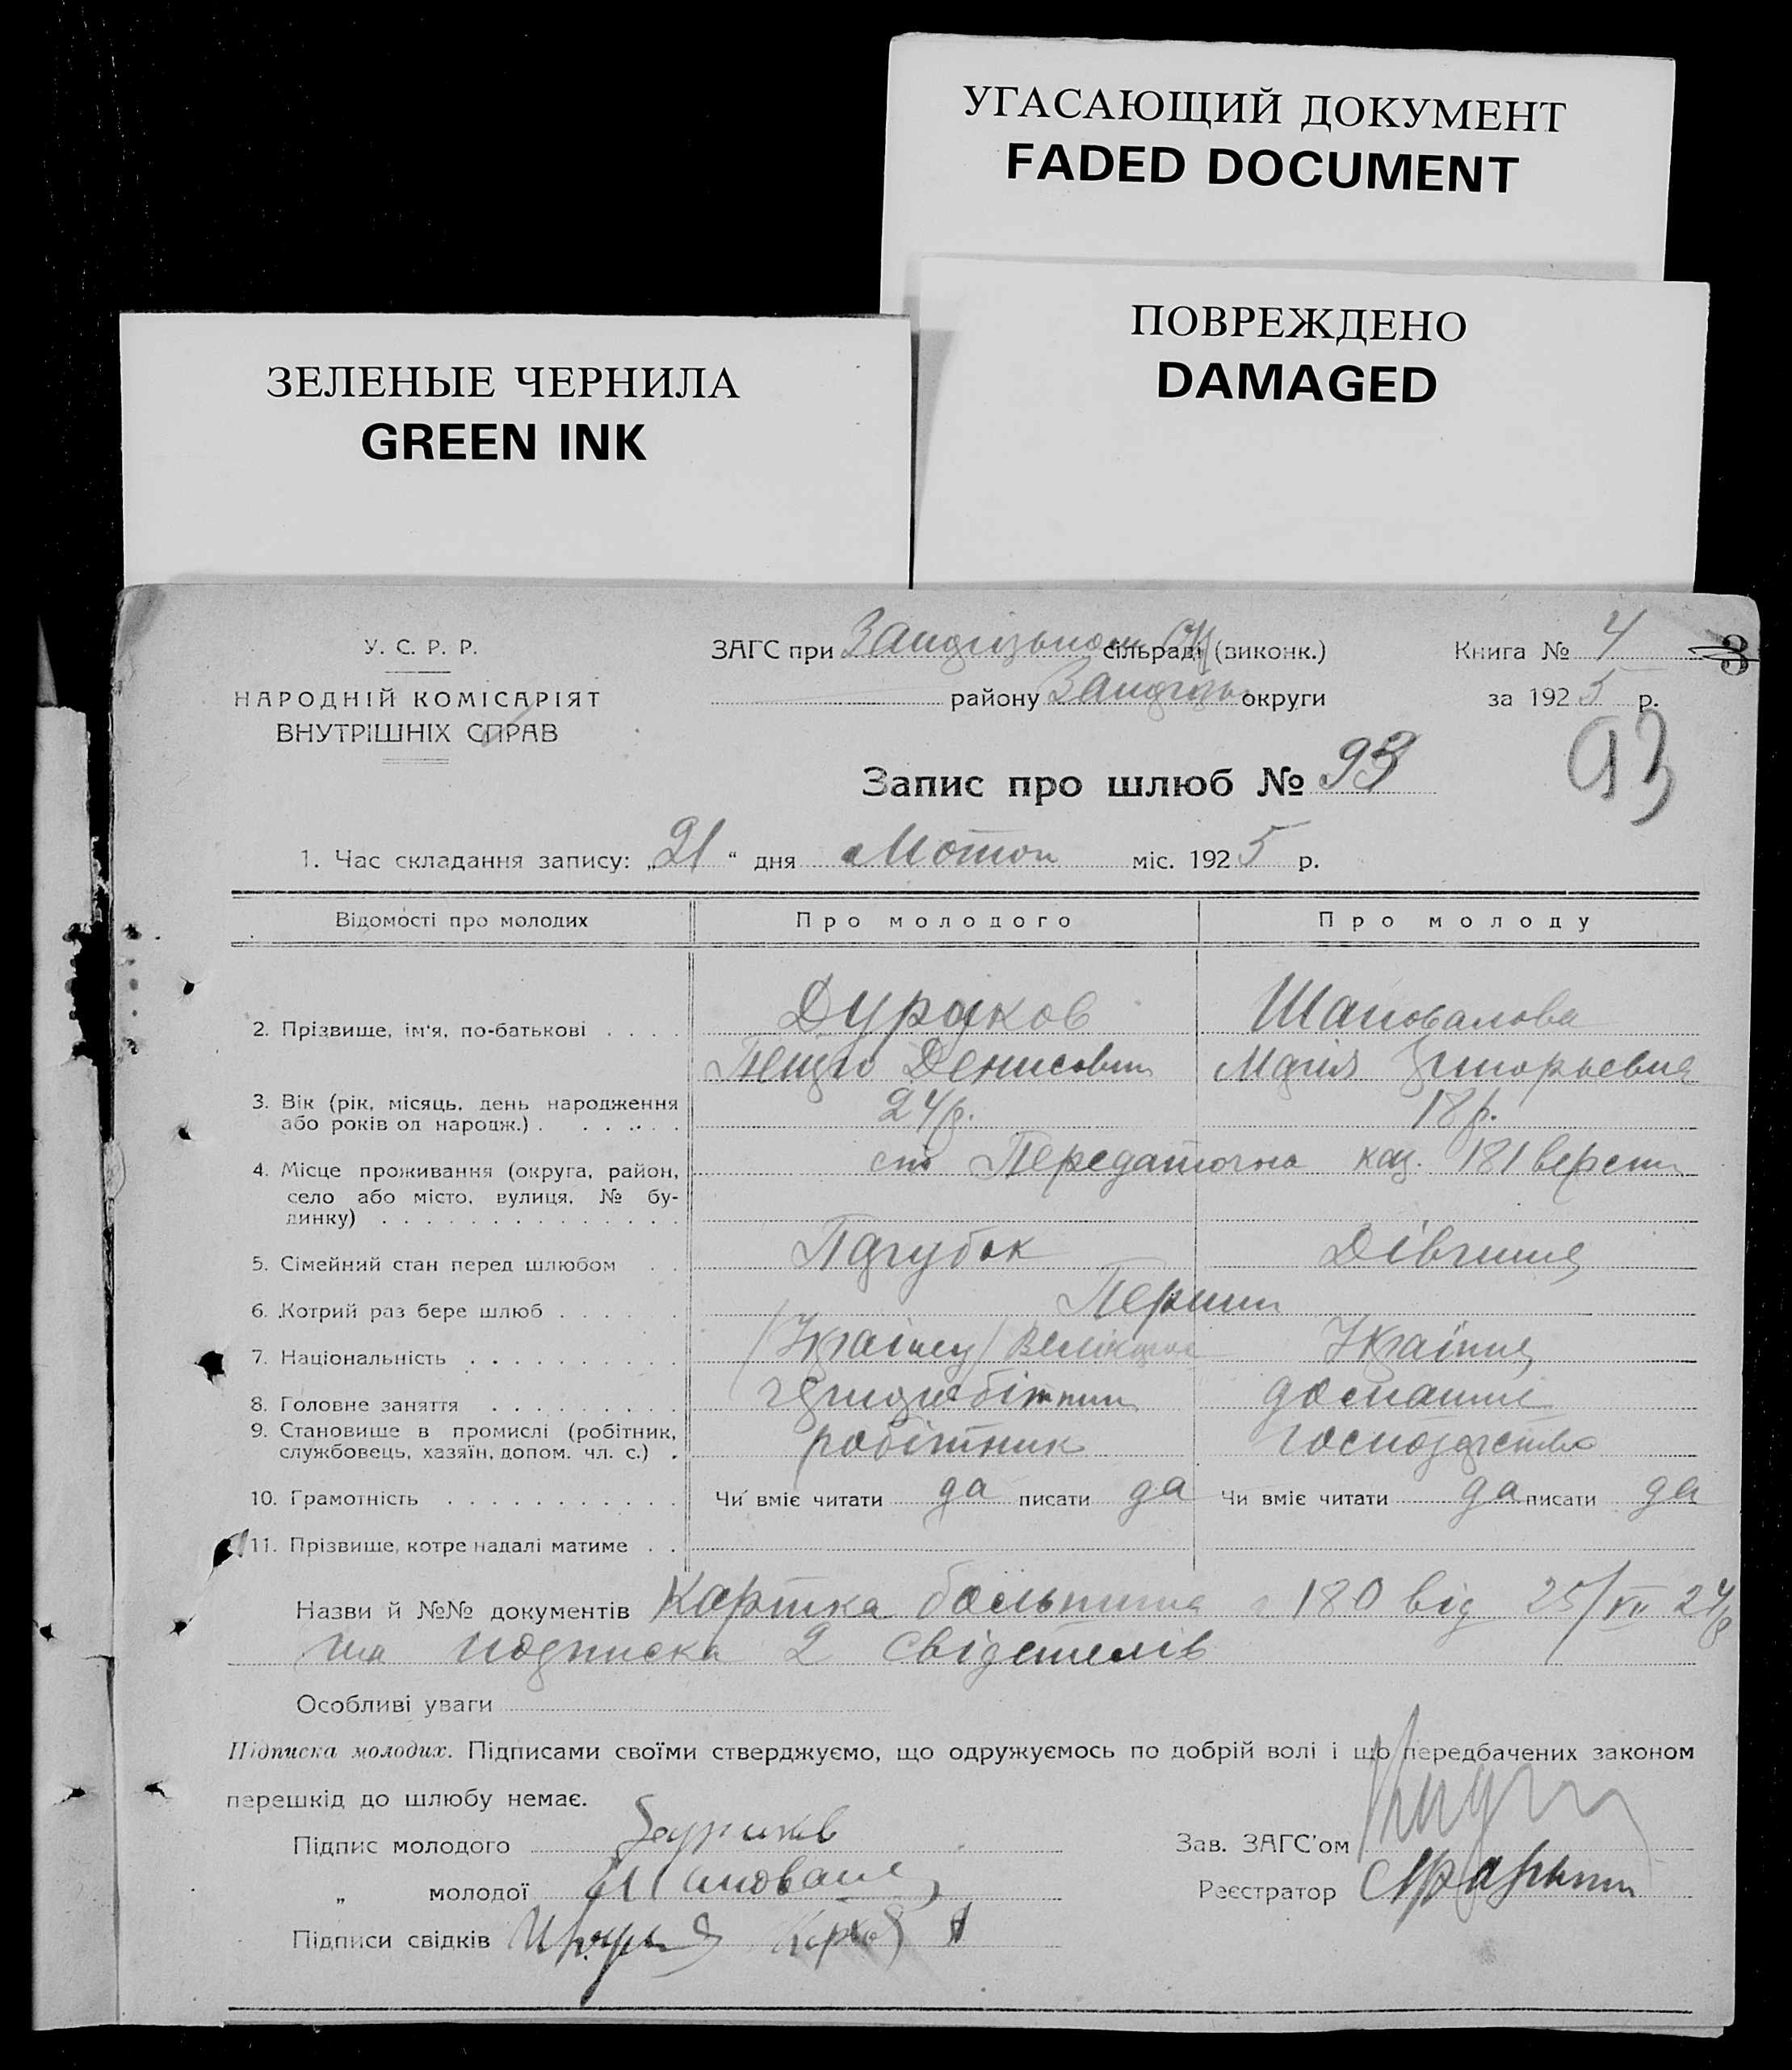 УГАСАЮЩИЙ ДОКУМЕНТ
FADED DOCUMENT
ПОВРЕЖДЕНО
DAMAGED
ЗЕЛЕНЫЕ ЧЕРНИЛА
GREEN INK
У. С. Р. Р.
НАРОДНІЙ КОМІСАРІЯТ
ВНУТРІШНІХ СПРАВ
ЗАГС при сільраді (виконк.)
району округи
Книга № 4
3
за 1925 р.
93
Запис про шлюб № 93
1. Час складання запису: „21“ дня міс. 1925 р.
Відомості про молодих
Про молодого
Про молоду
2. Прізвище, ім'я, по-батькові . . . .
Дураков
Денисович
Шаповалова
Марія Григорьевна
3. Вік (рік, місяць, день народження
або років од народж.) . . . . . .
24 р.
18 р.
4. Місце проживання (округа, район,
село або місто, вулиця, № бу-
динку) . . . . . . . . . . . . . .
ст Передаточна каз. 181 верста
5. Сімейний стан перед шлюбом . .
Парубок
Дівчина
6. Котрий раз бере шлюб . . . . . .
Перший
7. Національність . . . . . . . . . .
/Українец/
Українка
8. Головне заняття . . . . . . . . .
домашнє
9. Становище в промислі (робітник,
службовець, хазяїн, допом. чл. с.) .
робітник
господарство
10. Грамотність . . . . . . . . . . .
Чи вміє читати да писати да
Чи вміє читати да писати да
11. Прізвище, котре надалі матиме . .
Назви й №№ документів Картка 180 від 25/VI 24 р
та подписка 2 свідетелів
Особливі уваги
Підписка молодих. Підписами своїми стверджуємо, що одружуємось по добрій волі і що передбачених законом
перешкід до шлюбу немає.
Підпис молодого
„ молодої
Підписи свідків
Зав. ЗАГС'ом
Реєстратор